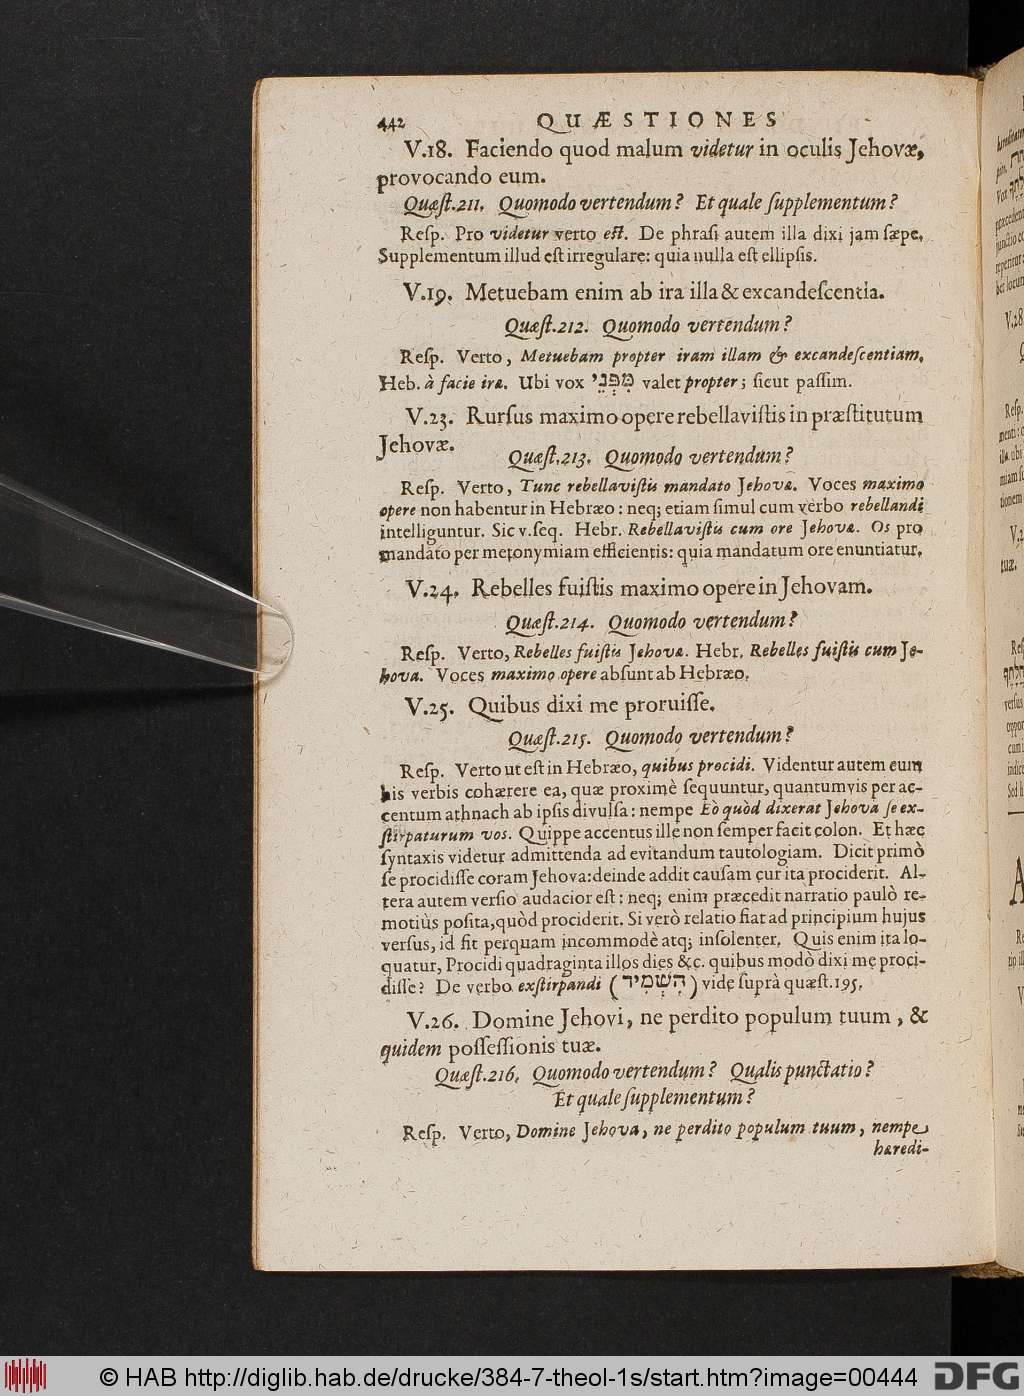 442 QUÆSTIONES
V.18. Faciendo quod malum videtur in oculis Jehovæ,
provocando eum.
Quæſt.211. Quomodo vertendum? Et quale ſupplementum?
Reſp. Pro videtur verto eſt. De phraſi autem illa dixi jam ſæpe.
Supplementum illud eſt irregulare: quia nulla eſt ellipſis.
V.19. Metuebam enim ab ira illa & excandeſcentia.
Quæſt.212. Quomodo vertendum?
Reſp. Verto, Metuebam propter iram illam & excandeſcentiam.
Heb. à facie iræ. Ubi vox מִפְּנֵי valet propter; ſicut paſſim.
V.23. Rurſus maximo opere rebellaviſtis in præſtitutum
Jehovæ.
Quæſt.213. Quomodo vertendum?
Reſp. Verto, Tunc rebellaviſtis mandato Jehovæ. Voces maximo
opere non habentur in Hebræo: neq; etiam ſimul cum verbo rebellandi
intelliguntur. Sic v.ſeq. Hebr. Rebellaviſtis cum ore Jehovæ. Os pro
mandato per metonymiam efficientis: quia mandatum ore enuntiatur.
V.24. Rebelles fuiſtis maximo opere in Jehovam.
Quæſt.214. Quomodo vertendum?
Reſp. Verto, Rebelles fuiſtis Jehovæ. Hebr. Rebelles fuiſtis cum Je-
hova. Voces maximo opere absunt ab Hebræo.
V.25. Quibus dixi me proruiſſe.
Quæſt.215. Quomodo vertendum?
Reſp. Verto ut eſt in Hebræo, quibus procidi. Videntur autem eum
his verbis cohærere ea, quæ proximè ſequuntur, quantumvis per ac-
centum athnach ab ipſis divulſa: nempe Eò quòd dixerat Jehova ſe ex-
ſtirpaturum vos. Quippe accentus ille non ſemper facit colon. Et hæc
ſyntaxis videtur admittenda ad evitandum tautologiam. Dicit primò
ſe procidiſſe coram Jehova: deinde addit cauſam cur ita prociderit. Al-
tera autem verſio audacior eſt: neq; enim præcedit narratio paulò re-
motiùs poſita, quòd prociderit. Si verò relatio fiat ad principium hujus
verſus, id fit perquam incommodè atq; inſolenter. Quis enim ita lo-
quatur, Procidi quadraginta illos dies &c. quibus modò dixi me proci-
diſſe? De verbo exſtirpandi (הִשְׁמִיד) vide ſuprà quæſt.195.
V.26. Domine Jehovi, ne perdito populum tuum, &
quidem poſſeſſionis tuæ.
Quæſt.216. Quomodo vertendum? Qualis punctatio?
Et quale ſupplementum?
Reſp. Verto, Domine Jehova, ne perdito populum tuum, nempe
hæredi-
© HAB http://diglib.hab.de/drucke/384-7-theol-1s/start.htm?image=00444
DFG